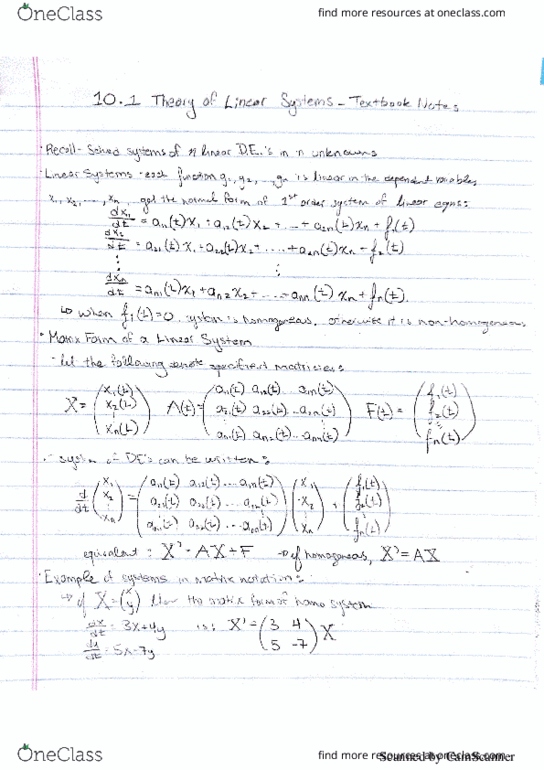 OneClass
find more resources at oneclass.com
10.1 Theory of Linear Systems - Textbook Notes
· Recall - Solved systems of n linear D.E.'s in n unknowns
· Linear Systems - each function g₁, g₂, ..., gₙ is linear in the dependent variables
x₁, x₂, ..., xₙ, get the normal form of 1st order system of linear eqns:
dx₁/dt = a₁₁(t)x₁ + a₁₂(t)x₂ + ... + a₁ₙ(t)xₙ + f₁(t)
dx₂/dt = a₂₁(t)x₁ + a₂₂(t)x₂ + ... + a₂ₙ(t)xₙ + f₂(t)
⋮ ⋮
dxₙ/dt = aₙ₁(t)x₁ + aₙ₂(t)x₂ + ... + aₙₙ(t)xₙ + fₙ(t).
↳ when f₁(t)=0 system is homogeneous, otherwise it is non-homogeneous
· Matrix Form of a Linear System
- let the following denote specified matrices:
X = (x₁(t) x₂(t) ⋮ xₙ(t)) A(t) = (a₁₁(t) a₁₂(t) ... a₁ₙ(t) a₂₁(t) a₂₂(t) ... a₂ₙ(t) ⋮ aₙ₁(t) aₙ₂(t) ... aₙₙ(t)) F(t) = (f₁(t) f₂(t) ⋮ fₙ(t))
- system of DE's can be written:
d/dt (x₁ x₂ ⋮ xₙ) = (a₁₁(t) a₁₂(t) ... a₁ₙ(t) a₂₁(t) a₂₂(t) ... a₂ₙ(t) ⋮ aₙ₁(t) aₙ₂(t) ... aₙₙ(t)) (x₁ x₂ ⋮ xₙ) + (f₁(t) f₂(t) ⋮ fₙ(t))
equivalent: X' = AX + F → if homogeneous, X' = AX
· Example of systems in matrix notation:
→ if X = (x y) then the matrix form of homo system
dx/dt = 3x+4y is: X' = (3 4 5 -7) X
dy/dt = 5x-7y
OneClass
find more resources at oneclass.com
Scanned by CamScanner